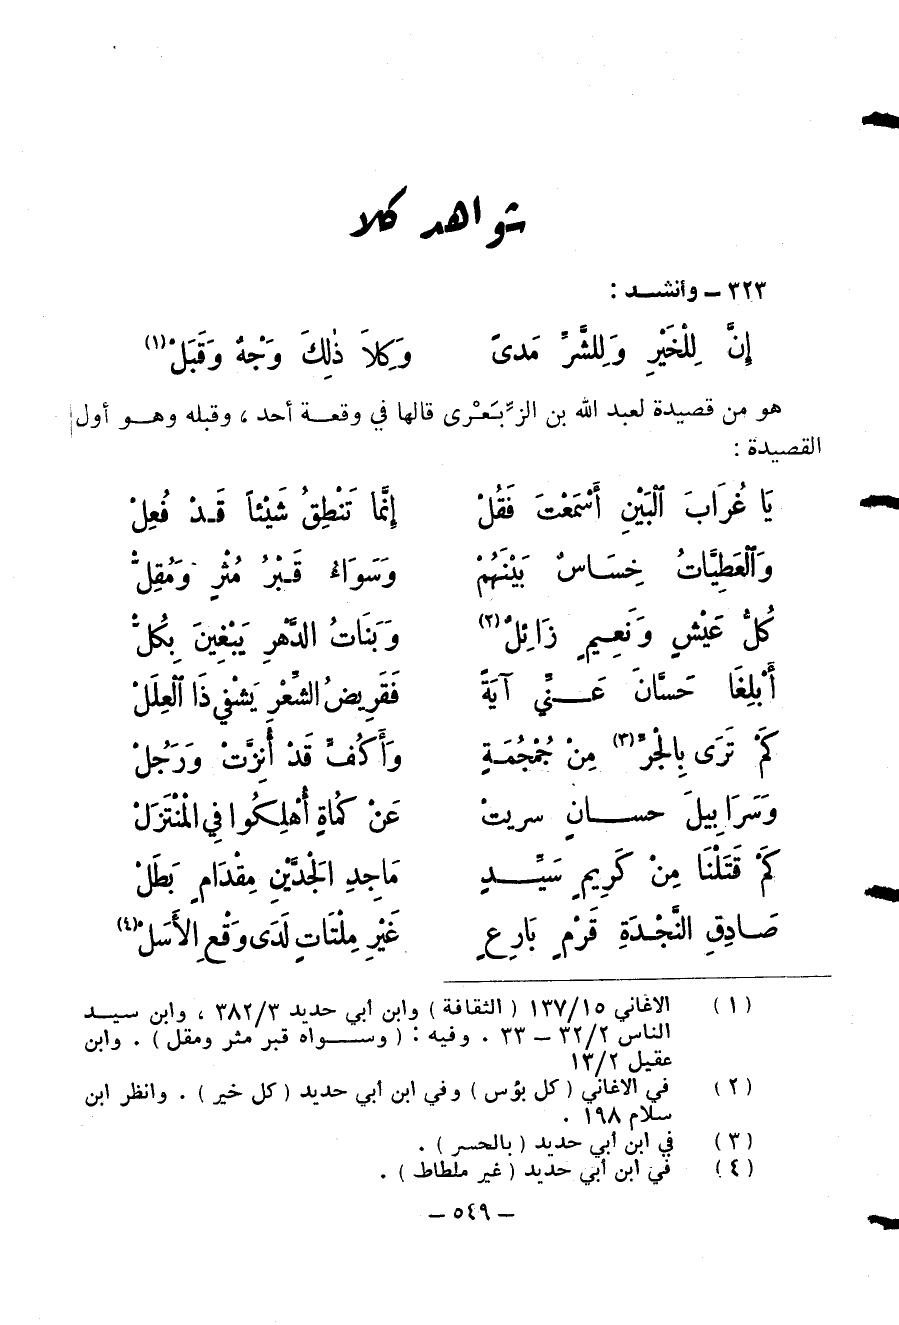 شواهد كلا
٣٢٣ - وأنشد :
إِنَّ لِلْخَيْرِ وَلِلشَّرِّ مَدىً وَكِلاَ ذٰلِكَ وَجْهٌ وَقَبَلْ(١)
هو من قصيدة لعبد الله بن الزِّبَعْرى قالها في وقعة أحد ، وقبله وهو أول
القصيدة :
يَا غُرَابَ الْبَيْنِ أَسْمَعْتَ فَقُلْ إِنَّمَا تَنْطِقُ شَيْئاً قَدْ فُعِلْ
وَالْعَطِيَّاتُ خِسَاسٌ بَيْنَهُمْ وَسَوَاءٌ قَبْرُ مُثْرٍ وَمُقِلّْ
كُلُّ عَيْشٍ وَنَعِيمٍ زَائِلٌ(٢) وَبَنَاتُ الدَّهْرِ يَبْغِينَ بِكُلّْ
أَبْلِغَا حَسَّانَ عَنِّي آيَةً فَقَرِيضُ الشِّعْرِ يَشْفِي ذَا الْعِلَلْ
كَمْ تَرَى بِالْجَرِّ(٣) مِنْ جُمْجُمَةٍ وَأَكُفٍّ قَدْ أُنِزَّتْ وَرَجُلْ
وَسَرَابِيلَ حسانٍ سريتْ عَنْ كُمَاةٍ أُهْلِكُوا فِي الْمُنْتَزَلْ
كَمْ قَتَلْنَا مِنْ كَرِيمٍ سَيِّدٍ مَاجِدِ الْجَدَّيْنِ مِقْدَامٍ بَطَلْ
صَادِقِ النَّجْدَةِ قَرْمٍ بَارِعٍ غَيْرِ مِلْتَاتٍ لَدَى وَقْعِ الأَسَلْ(٤)
(١) الاغاني ١٣٧/١٥ ( الثقافة ) وابن أبي حديد ٣٨٢/٣ ، وابن سيد
الناس ٣٢/٢ - ٣٣ . وفيه : ( وسواه قبر مثر ومقل ) . وابن
عقيل ١٣/٢
(٢) في الاغاني ( كل بؤس ) وفي ابن أبي حديد ( كل خير ) . وانظر ابن
سلام ١٩٨ .
(٣) في ابن أبي حديد ( بالحسر ) .
(٤) في ابن أبي حديد ( غير ملطاط ) .
- ٥٤٩ -